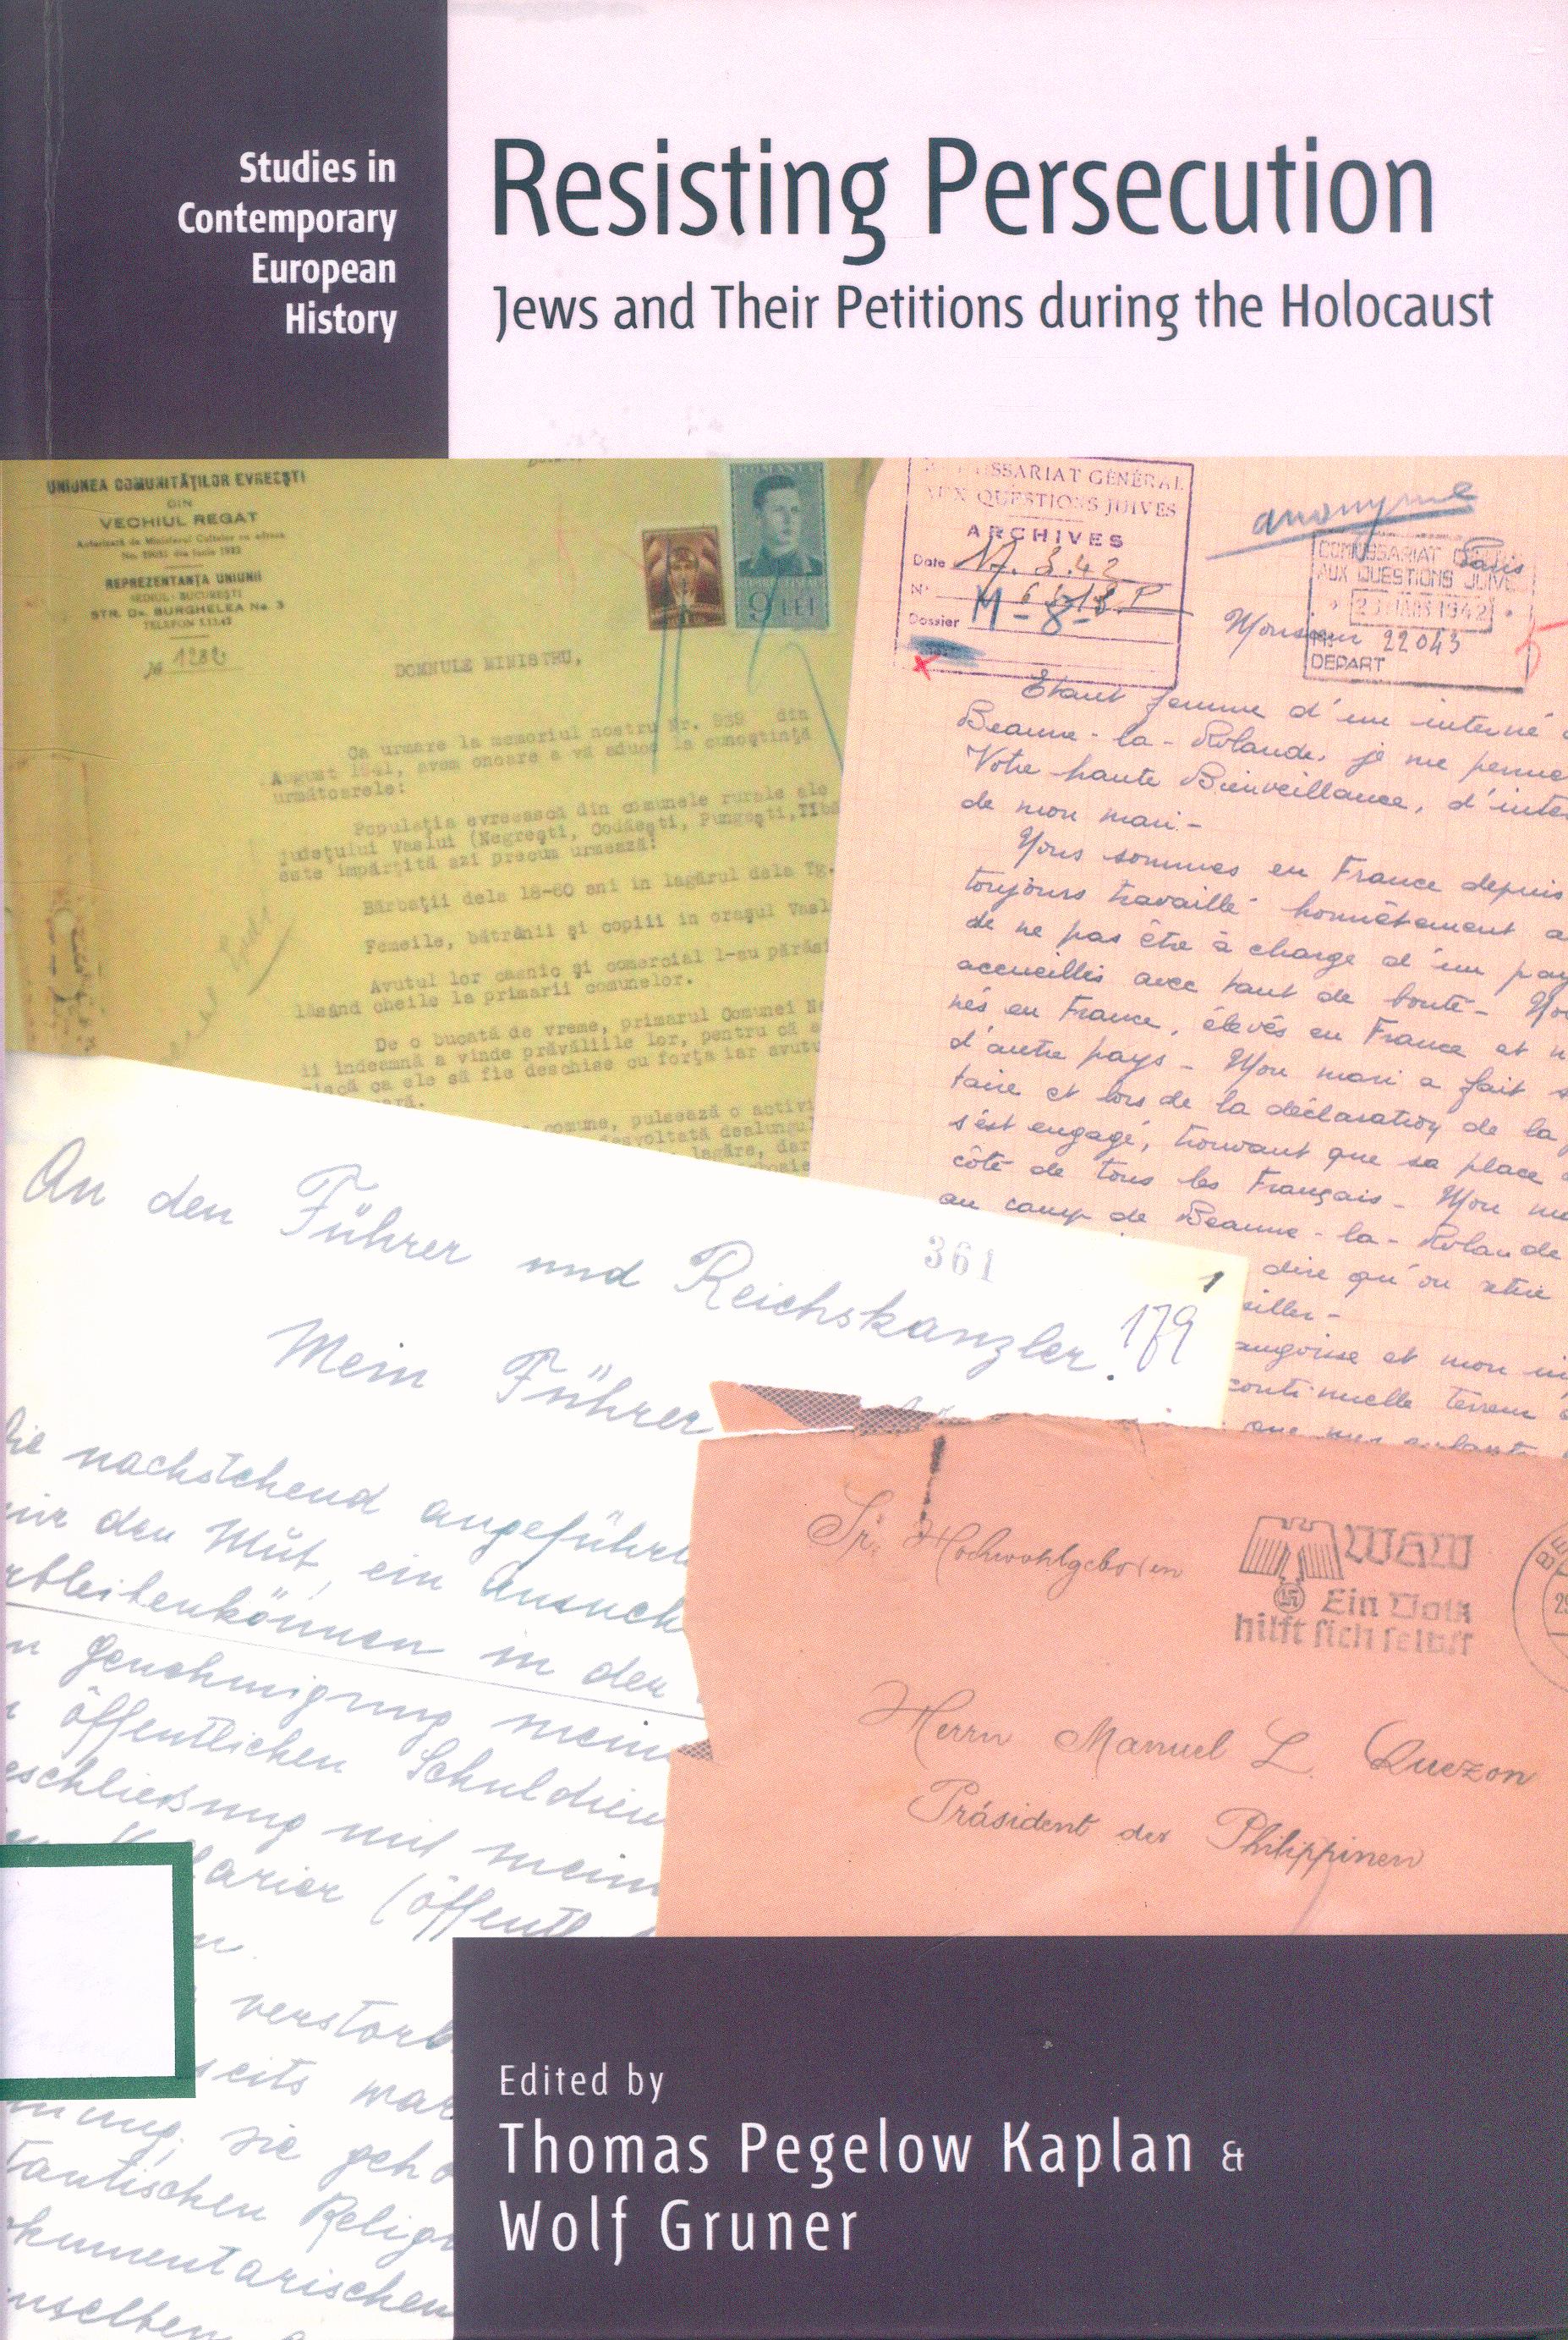 Studies in
Contemporary
European
History
Resisting Persecution
Jews and Their Petitions during the Holocaust
UNIUNEA COMUNITĂȚILOR EVREEȘTI
DIN
VECHIUL REGAT
REPREZENTANȚA UNIUNII
SEDIUL: BUCUREȘTI
STR. Dr. BURGHELEA No. 3
TELEFON
№ 1282
ROMANIA
9 LEI
DOMNULE MINISTRU,
Ca urmare la memoriul nostru Nr. 939 din
August 1941, avem onoare a vă aduce la cunoștință
următoarele:
Populația evreească din comunele rurale ale
județului Vaslui (Negrești, Codăești, Pungești,
este împărțită azi precum urmează:
Bărbații dela 18-60 ani in lagărul dela Tg.
Femeile, bătrânii și copiii in orașul Vasl
Avutul lor casnic și comercial l-au părăsi
lăsând cheile la primarii comunelor.
De o bucată de vreme, primarul Comunei Ne
ii indeamnă a vinde prăvăliile lor, pentru că
ca ele să fie deschise cu forța iar avutu
comune, pulsează o activi
desvoltată dealungul
lagăre, dar
SSARIAT GÉNÉRAL
AUX QUESTIONS JUIVES
ARCHIVES
Date 17.3.42
N°
Dossier M-8-
anonyme
COMMISSARIAT
AUX QUESTIONS JUIVES
Paris
23 MARS 1942
22043
DEPART
Monsieur
Etant femme d'un interné
Beaune-la-Rolande, je me perme
Votre haute Bienveillance, d'inter
de mon mari-
Nous sommes en France depuis
toujours travaillé honnêtement a
de ne pas être à charge d'un pay
accueillis avec tant de bonté- No
nés en France, élevés en France et n
d'autre pays- Mon mari a fait s
taire et lors de la déclaration de la
s'est engagé, trouvant que sa place
côté de tous les Français- Mon ma
au camp de Beaune-la-Rolande
dire qu'on
siller-
angoisse et mon in
continuelle terreur
que mes enfants
An den Führer und Reichskanzler.
361
1
179
Mein Führer
Die nachstehend angeführt
mir den Mut, ein Ansuch
rbleibenkönnen in der
n Genehmigung mein
öffentlichen Schuldien
eschließung mit mein
arier (öffentl
n.
verstorb
seits war
nung; sie gehö
tantischen Religi
okumentarischen
nselben
Sr. Hochwohlgeboren
WHW
Ein Volk
hilft sich selbst
BE
29
Herrn Manuel L. Quezon
Präsident der Philippinen
Edited by
Thomas Pegelow Kaplan &
Wolf Gruner